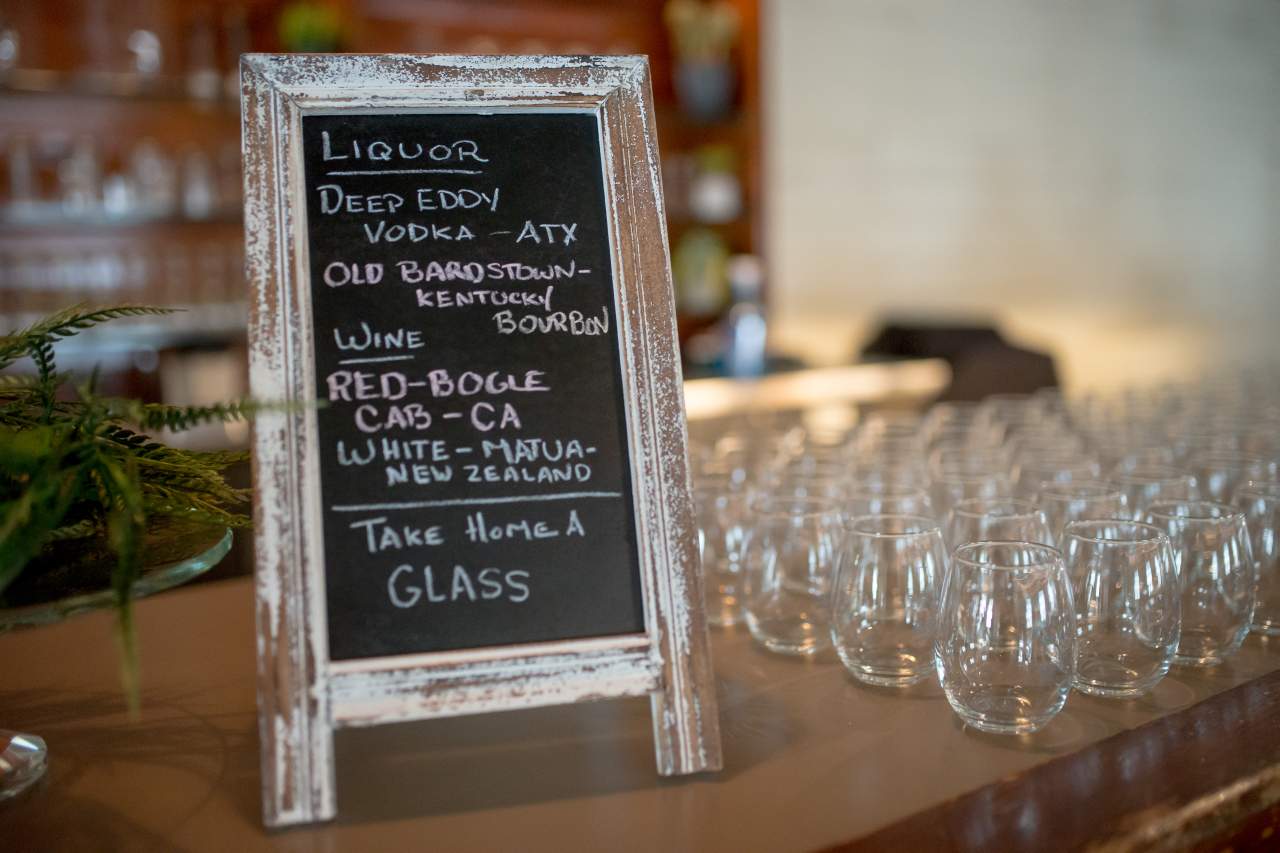 LIQUOR
DEEP EDDY
VODKA - ATX
OLD BARDSTOWN-
KENTUCKY
BOURBON
WINE
RED-BOGLE
CAB - CA
WHITE - MATUA-
NEW ZEALAND
TAKE HOME A
GLASS